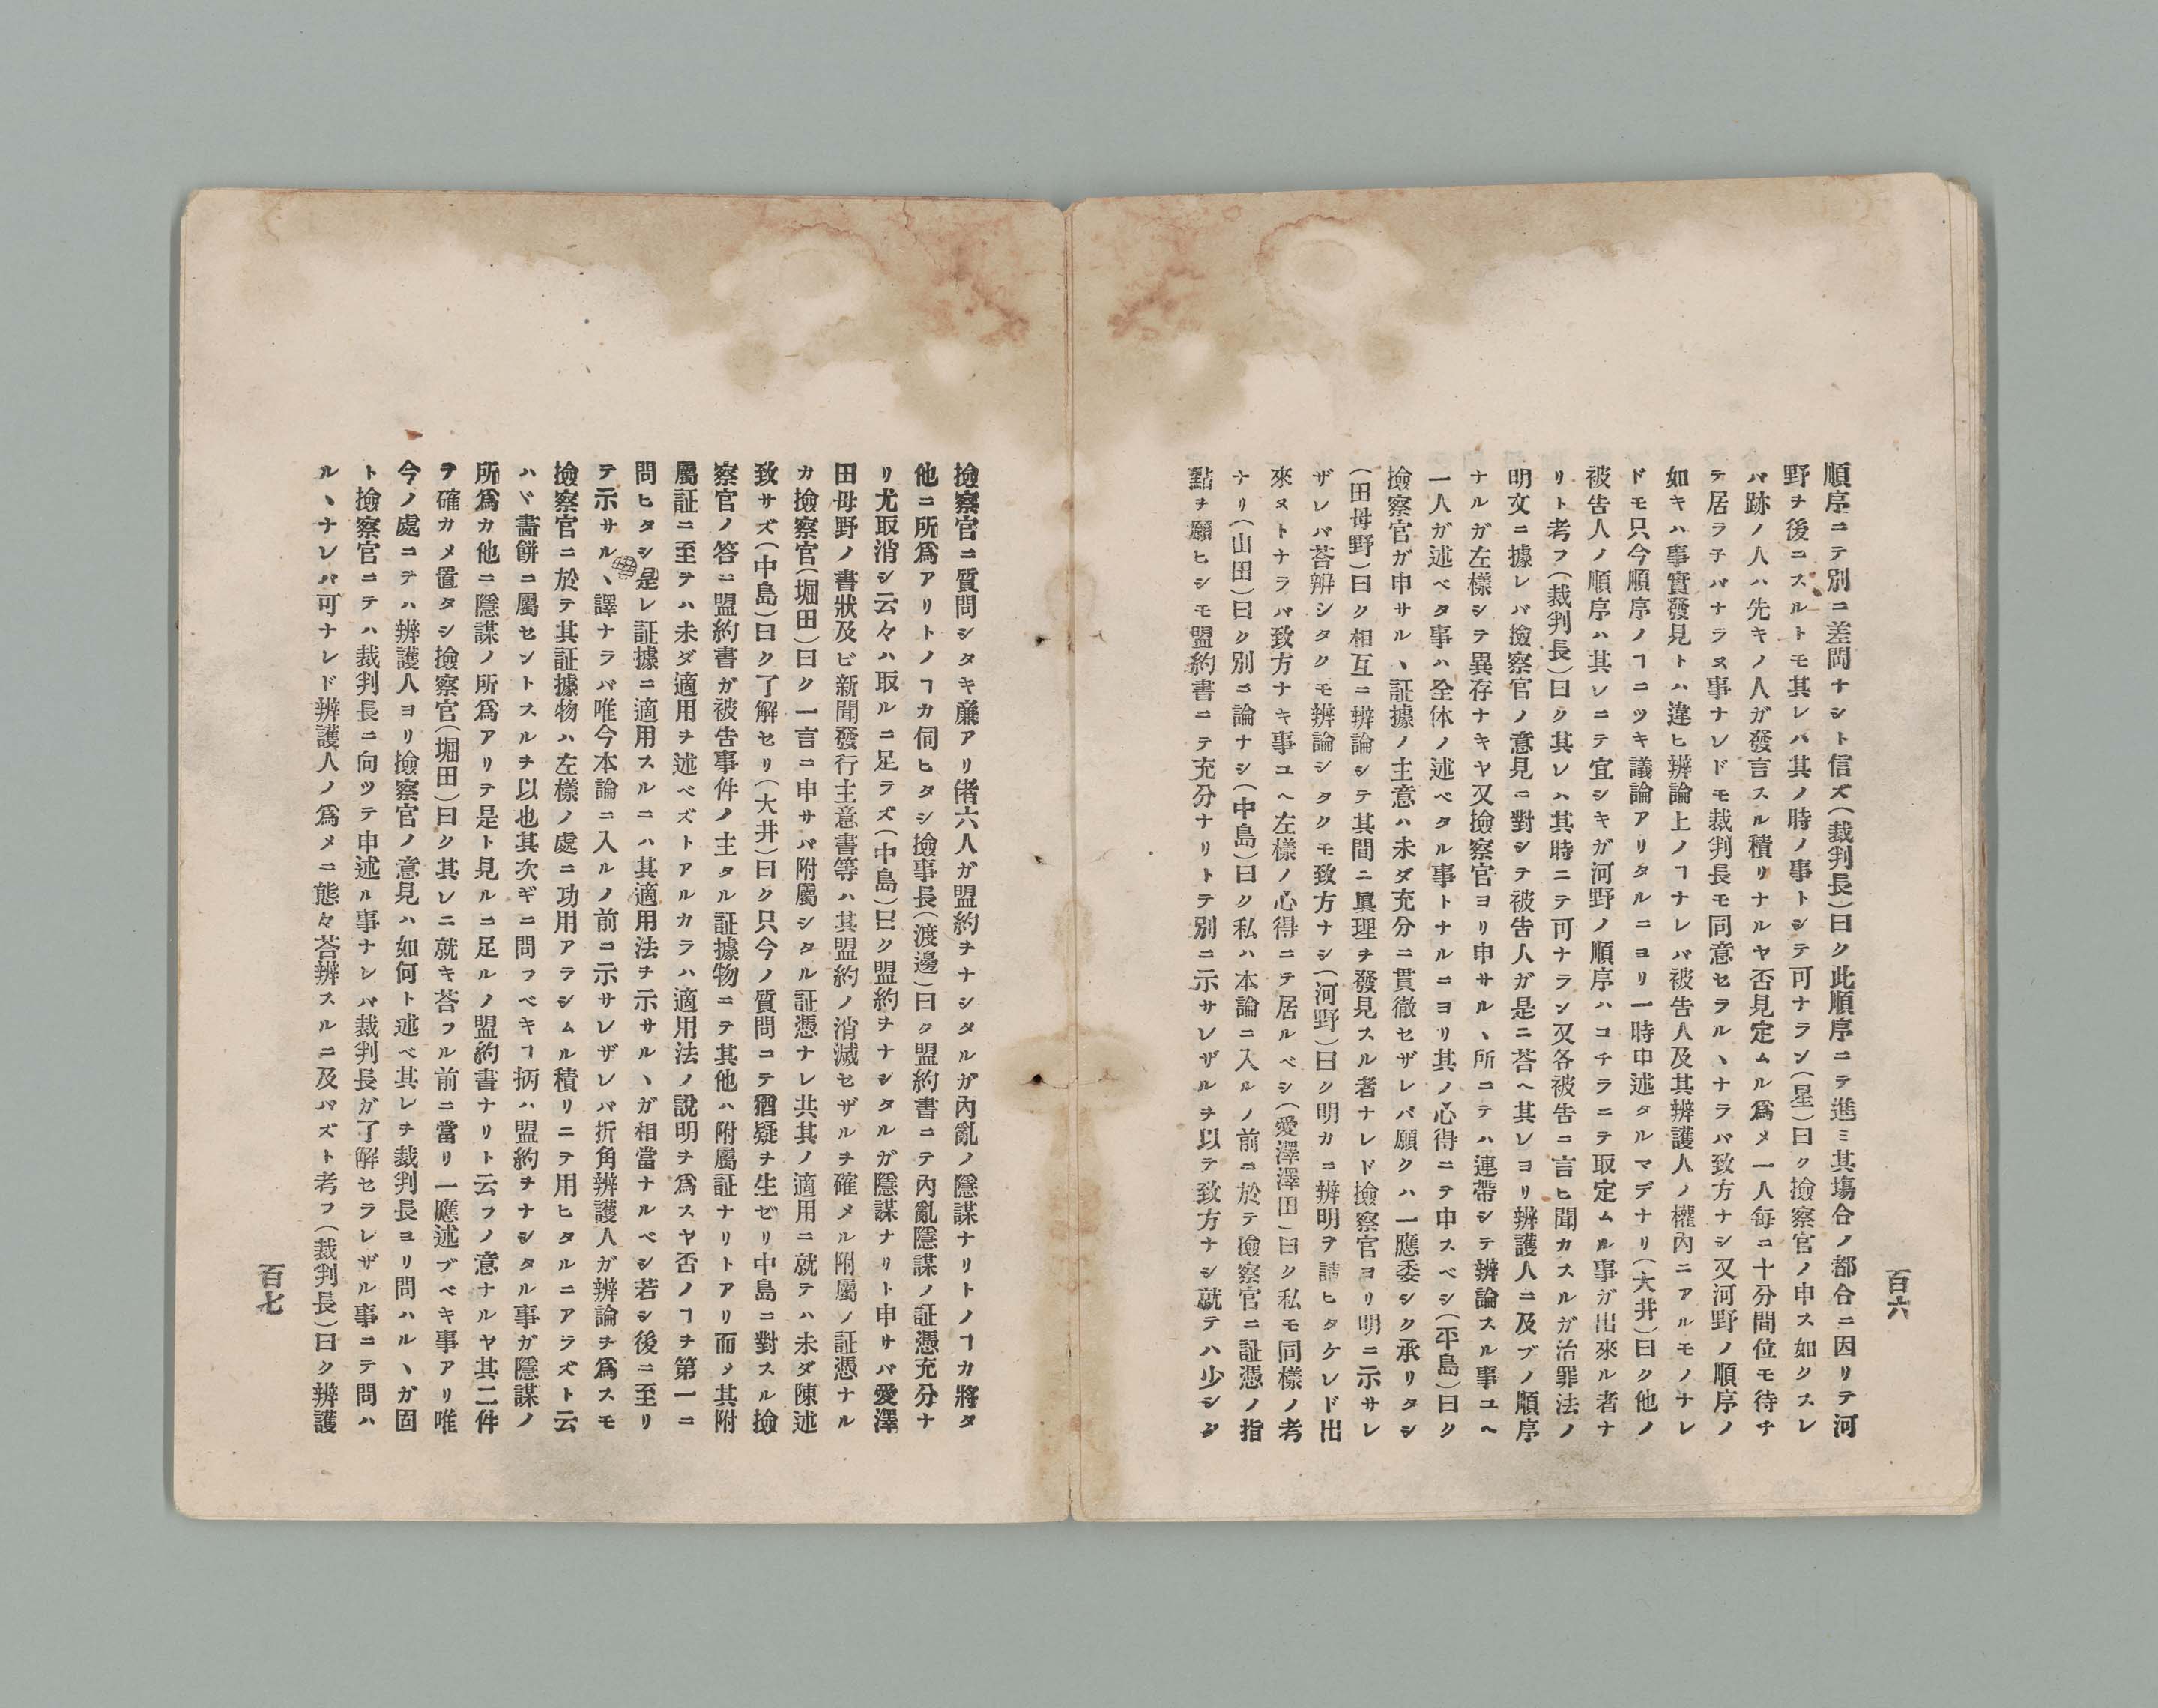 百六
順序ニテ別ニ差閊ナシト信ズ（裁判長）曰ク此順序ニテ進ミ其塲合ノ都合ニ因リテ河
野ヲ後ニスルトモ其レハ其ノ時ノ事トシテ可ナラン（星）曰ク撿察官ノ申ス如クスレ
バ跡ノ人ハ先キノ人ガ發言スル積リナルヤ否見定ムル爲メ一人每ニ十分間位モ待チ
テ居ラ子バナラヌ事ナレドモ裁判長モ同意セラルヽナラバ致方ナシ又河野ノ順序ノ
如キハ事實發見トハ違ヒ辨論上ノヿナレバ被告人及其辨護人ノ權內ニアルモノナレ
ドモ只今順序ノヿニツキ議論アリタルニヨリ一時申述タルマデナリ（大井）曰ク他ノ
被告人ノ順序ハ其レニテ宜シキガ河野ノ順序ハコチラニテ取定ムル事ガ出來ル者ナ
リト考フ（裁判長）曰ク其レハ其時ニテ可ナラン又各被告ニ言ヒ聞カスルガ治罪法ノ
明文ニ據レバ撿察官ノ意見ニ對シテ被告人ガ是ニ荅ヘ其レヨリ辨護人ニ及ブノ順序
ナルガ左樣シテ異存ナキヤ又撿察官ヨリ申サルヽ所ニテハ連帶シテ辨論スル事ユヘ
一人ガ述ベタ事ハ全体ノ述ベタル事トナルニヨリ其ノ心得ニテ申スベシ（平島）曰ク
撿察官ガ申サルヽ証據ノ主意ハ未ダ充分ニ貫徹セザレバ願クハ一應委シク承リタシ
（田母野）曰ク相互ニ辨論シテ其間ニ眞理ヲ發見スル者ナレド撿察官ヨリ明ニ示サレ
ザレバ荅辨シタクモ辨論シタクモ致方ナシ（河野）曰ク明カニ辨明ヲ請ヒタケレド出
來ヌトナラバ致方ナキ事ユヘ左樣ノ心得ニテ居ルベシ（愛澤澤田）曰ク私モ同樣ノ考
ナリ（山田）曰ク別ニ論ナシ（中島）曰ク私ハ本論ニ入ルノ前ニ於テ撿察官ニ証憑ノ指
點ヲ願ヒシモ盟約書ニテ充分ナリトテ別ニ示サレザルヲ以テ致方ナシ就テハ少シク
撿察官ニ質問シタキ廉アリ偖六人ガ盟約ヲナシタルガ內亂ノ隱謀ナリトノヿカ將タ
他ニ所爲アリトノヿカ伺ヒタシ撿事長（渡邊）曰ク盟約書ニテ內亂隱謀ノ証憑充分ナ
リ尤取消シ云々ハ取ルニ足ラズ（中島）曰ク盟約ヲナシタルガ隱謀ナリト申サバ愛澤
田母野ノ書狀及ビ新聞發行主意書等ハ其盟約ノ消滅セザルヲ確メル附屬ノ証憑ナル
カ撿察官（堀田）曰ク一言ニ申サバ附屬シタル証憑ナレ共其ノ適用ニ就テハ未ダ陳述
致サズ（中島）曰ク了解セリ（大井）曰ク只今ノ質問ニテ猶疑ヲ生ゼリ中島ニ對スル撿
察官ノ答ニ盟約書ガ被告事件ノ主タル証據物ニテ其他ハ附屬証ナリトアリ而〆其附
屬証ニ至テハ未ダ適用ヲ述ベズトアルカラハ適用法ノ說明ヲ爲スヤ否ノヿヲ第一ニ
問ヒタシ是レ証據ニ適用スルニハ其適用法ヲ示サルヽガ相當ナルベシ若シ後ニ至リ
テ示サルヽ譯ナラバ唯今本論ニ入ルノ前ニ示サレザレバ折角辨護人ガ辨論ヲ爲スモ
撿察官ニ於テ其証據物ハ左樣ノ處ニ功用アラシムル積リニテ用ヒタルニアラズト云
ハヾ畵餅ニ屬セントスルヲ以也其次ギニ問フベキヿ抦ハ盟約ヲナシタル事ガ隱謀ノ
所爲カ他ニ隱謀ノ所爲アリテ是ト見ルニ足ルノ盟約書ナリト云フノ意ナルヤ其二件
ヲ確カメ置タシ撿察官（堀田）曰ク其レニ就キ荅フル前ニ當リ一應述ブベキ事アリ唯
今ノ處ニテハ辨護人ヨリ撿察官ノ意見ハ如何ト述ベ其レヲ裁判長ヨリ問ハルヽガ固
ト撿察官ニテハ裁判長ニ向ツテ申述ル事ナレバ裁判長ガ了解セラレザル事ニテ問ハ
ルヽナレバ可ナレド辨護人ノ爲メニ態々荅辨スルニ及バズト考フ（裁判長）曰ク辨護
百七